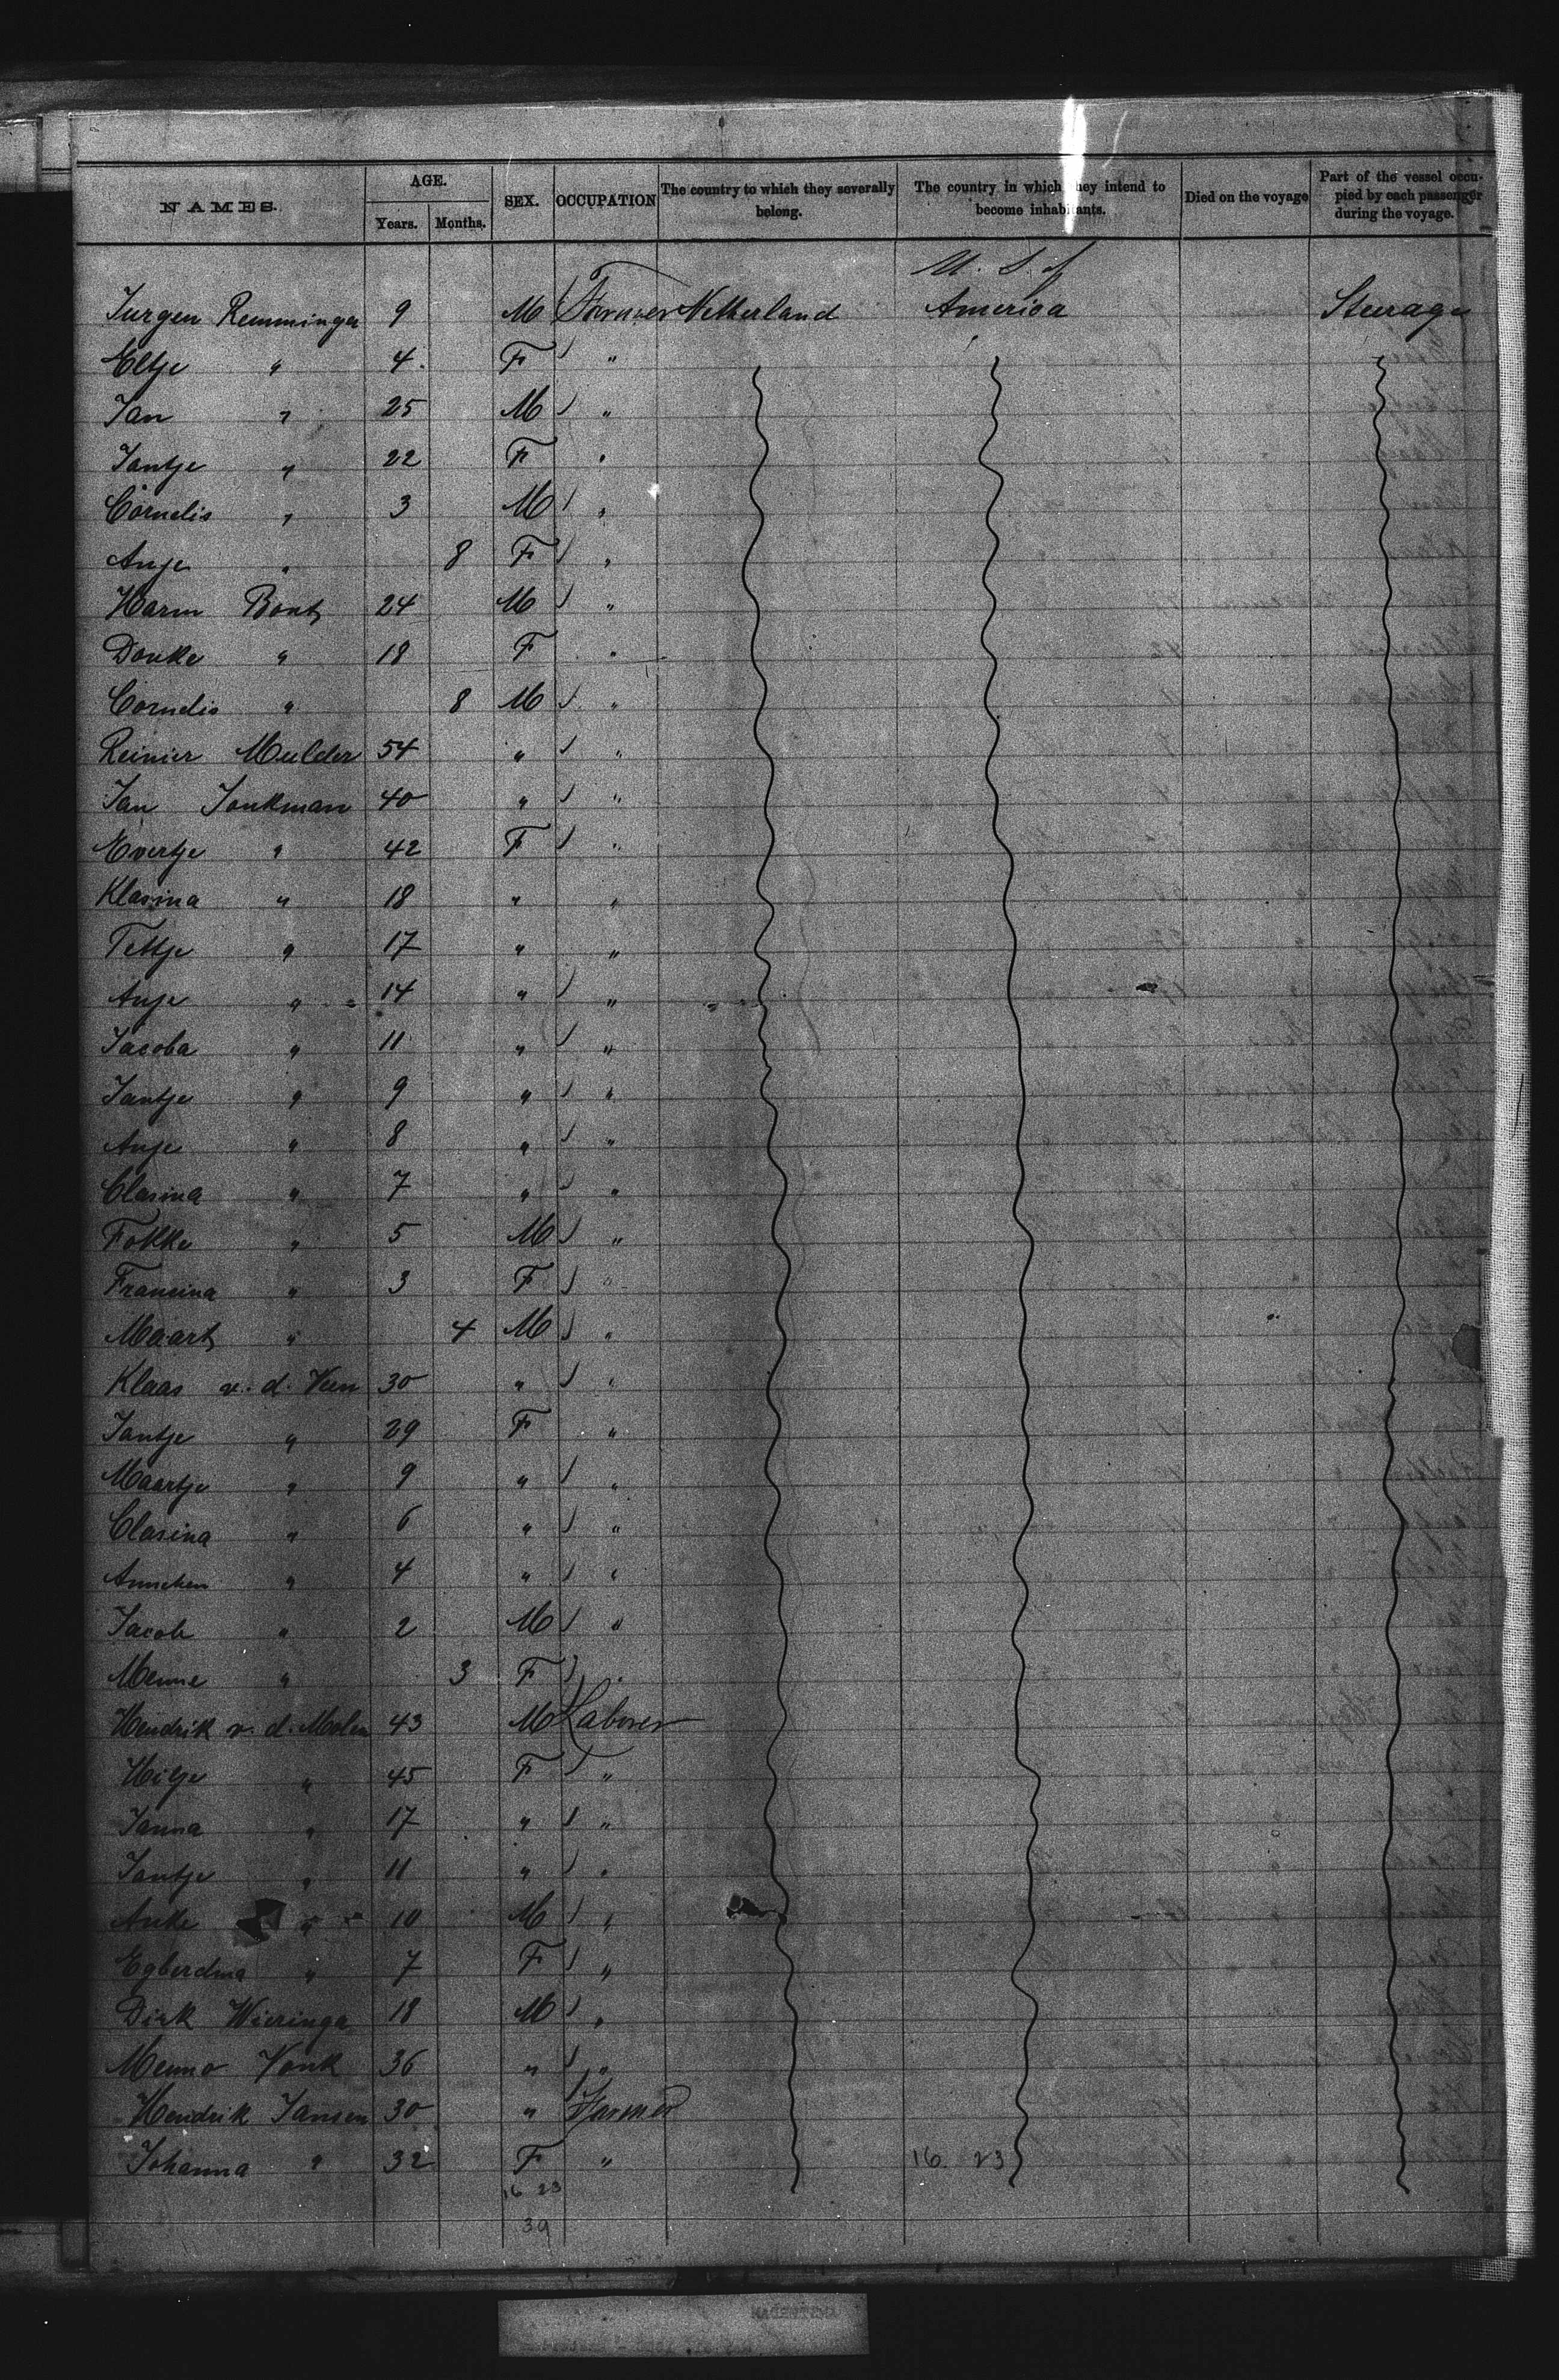 NAMES. AGE. SEX. OCCUPATION The country to which they severally belong. The country in which they intend to become inhabitants. Died on the voyage Part of the vessel occupied by each passenger during the voyage.
Years. Months.
U. S. of
Jurgen Remminga 9 M Farmer Netherland America Steerage
Eltje " 4. F "
Jan " 25 M "
Jantje " 22 F "
Cornelis " 3 M "
Anje " 8 F "
Harm Bont 24 M "
Douke " 18 F "
Cornelis " 8 M "
Reinier Mulder 54 " "
Jan Jonkman 40 " "
Evertje " 42 F "
Klasina " 18 " "
Tettje " 17 " "
Anje " 14 " "
Jacoba " 11 " "
Jantje " 9 " "
Anje " 8 " "
Clasina " 7 " "
Fokke " 5 M "
Fransina " 3 F "
Maart " 4 M "
Klaas v. d. Veen 30 " "
Jantje " 29 F "
Maartje " 9 " "
Clasina " 6 " "
Annchen " 4 " "
Jacob " 2 M "
Menne " 3 F "
Hendrik v. d. Molen 43 M Laborer
Hilje " 45 F "
Janna " 17 " "
Jantje " 11 " "
Anke " 10 M "
Egberdina " 7 F "
Dirk Wieringa 18 M "
Menno Vonk 36 " "
Hendrik Jansen 30 " Farmer
Johanna " 32 F " 16 23
16 23
39